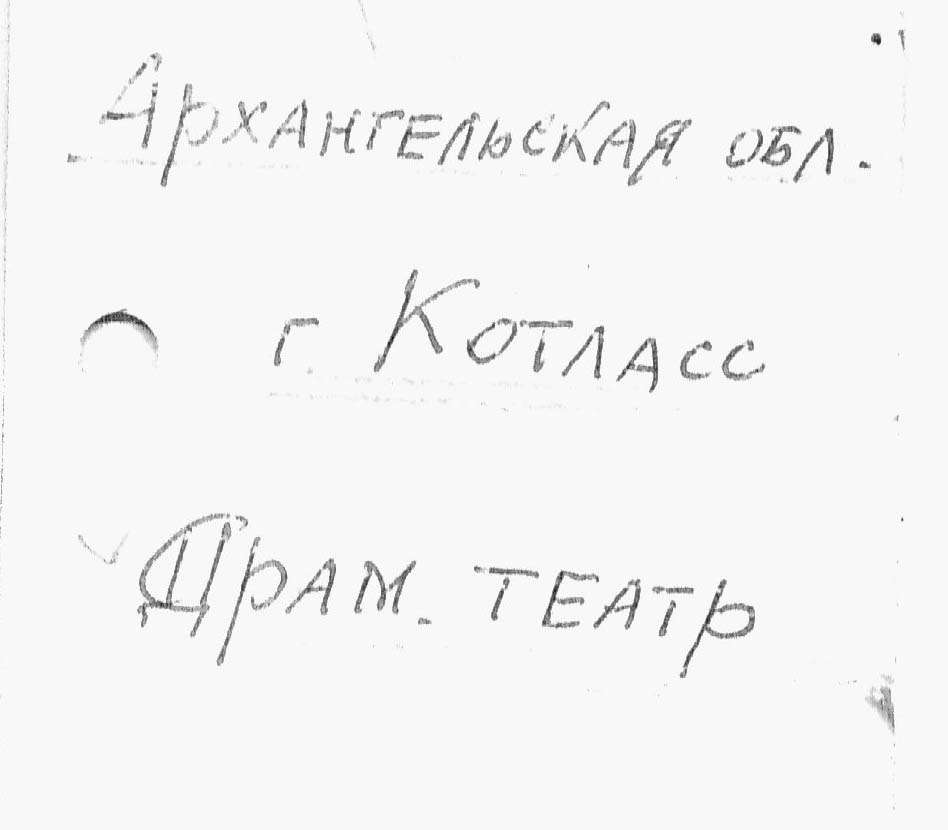 Архангельская обл.
г Котласс
Драм. театр